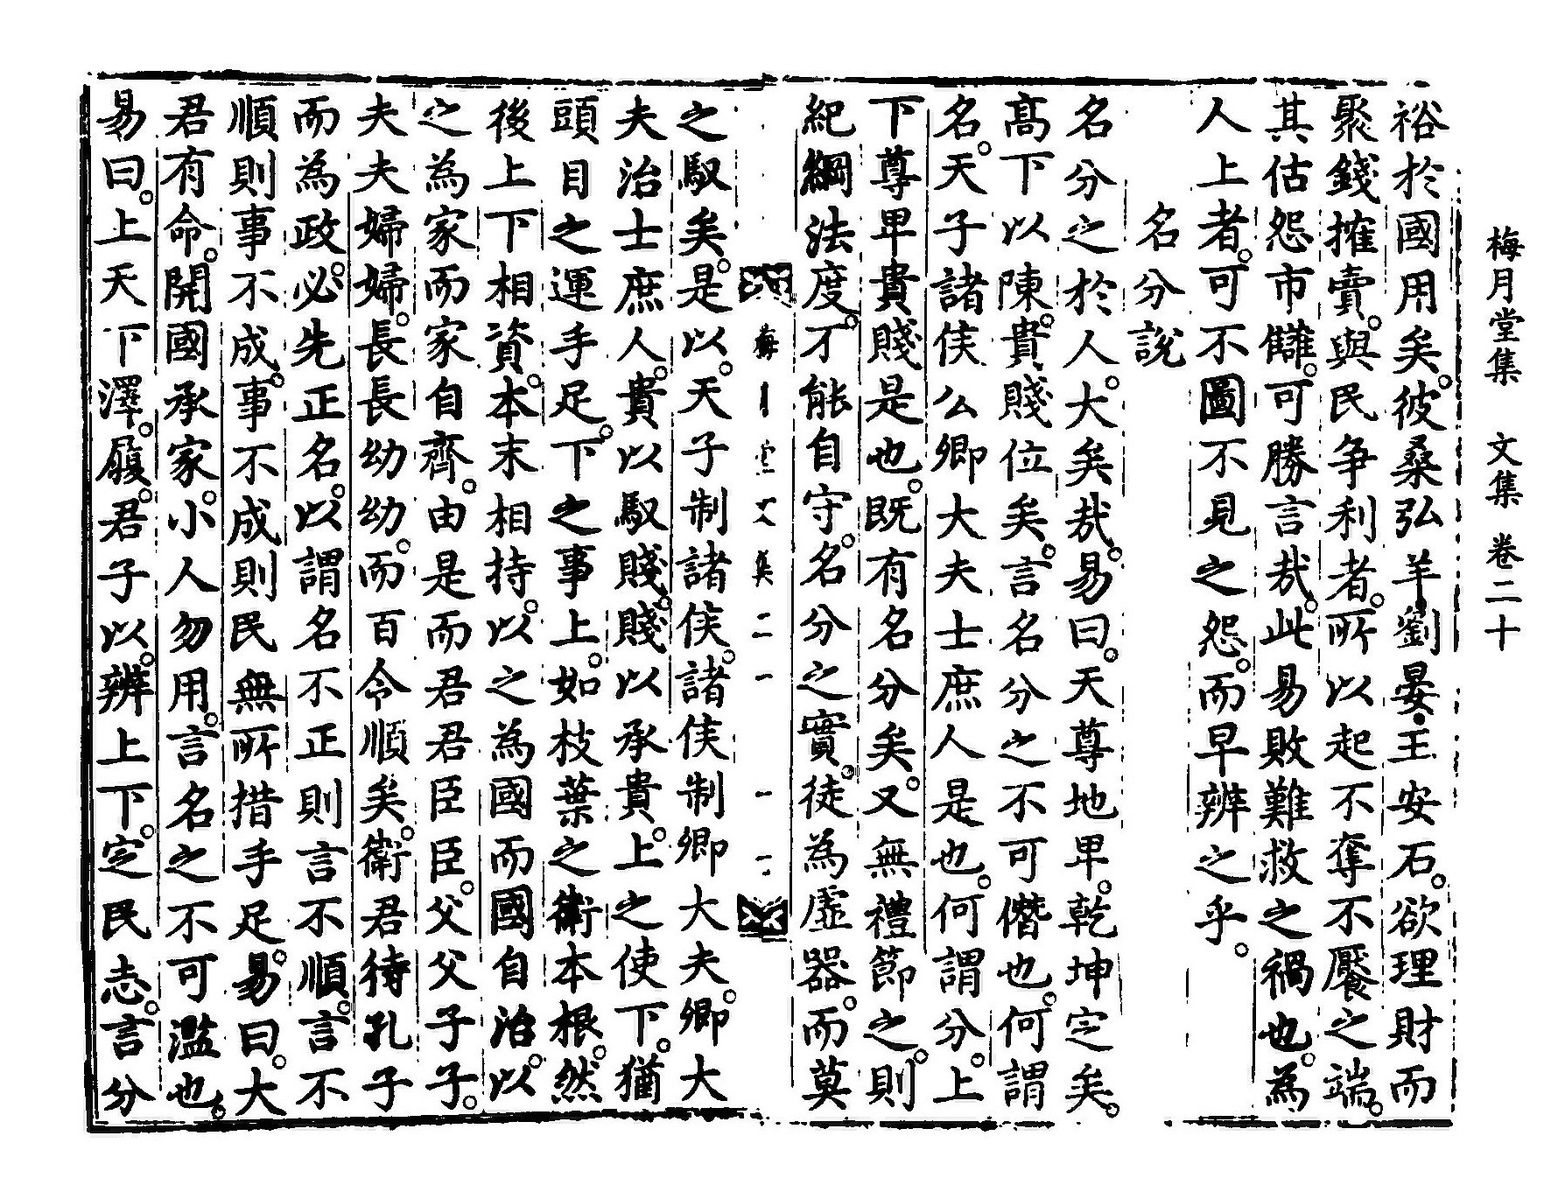 梅月堂集 文集 卷二十
裕於國用矣。彼桑弘羊·劉晏·王安石。欲理財而
聚錢搉賣。與民争利者。所以起不奪不饜之端。
其估怨市讎。可勝言㢤。此易敗難救之禍也。為
人上者。可不圖不見之怨。而早辨之乎。
名分說
名分之於人。大矣㢤。易曰。天尊地卑。乾坤㝎矣。
高下以陳。貴賤位矣。言名分之不可僭也。何謂
名。天子諸侯公卿大夫士庶人是也。何謂分。上
下尊卑貴賤是也。旣有名分矣。又無禮節之。則
紀綱法度。不能自守。名分之實。徒為虛器。而莫
梅月堂文集二十
之馭矣。是以。天子制諸侯。諸侯制卿大夫。卿大
夫治士庶人。貴以馭賤。賤以承貴。上之使下。猶
頭目之運手足。下之事上。如枝葉之衛本根。然
後上下相資。本末相持。以之為國而國自治。以
之為家而家自齊。由是而君君臣臣。父父子子。
夫夫婦婦。長長幼幼。而百令順矣。衛君待孔子
而為政。必先正名。以謂名不正則言不順。言不
順則事不成。事不成則民無所措手足。易曰。大
君有命。開國承家。小人勿用。言名之不可濫也。
易曰。上天下澤。履。君子以。辨上下。㝎民志。言分